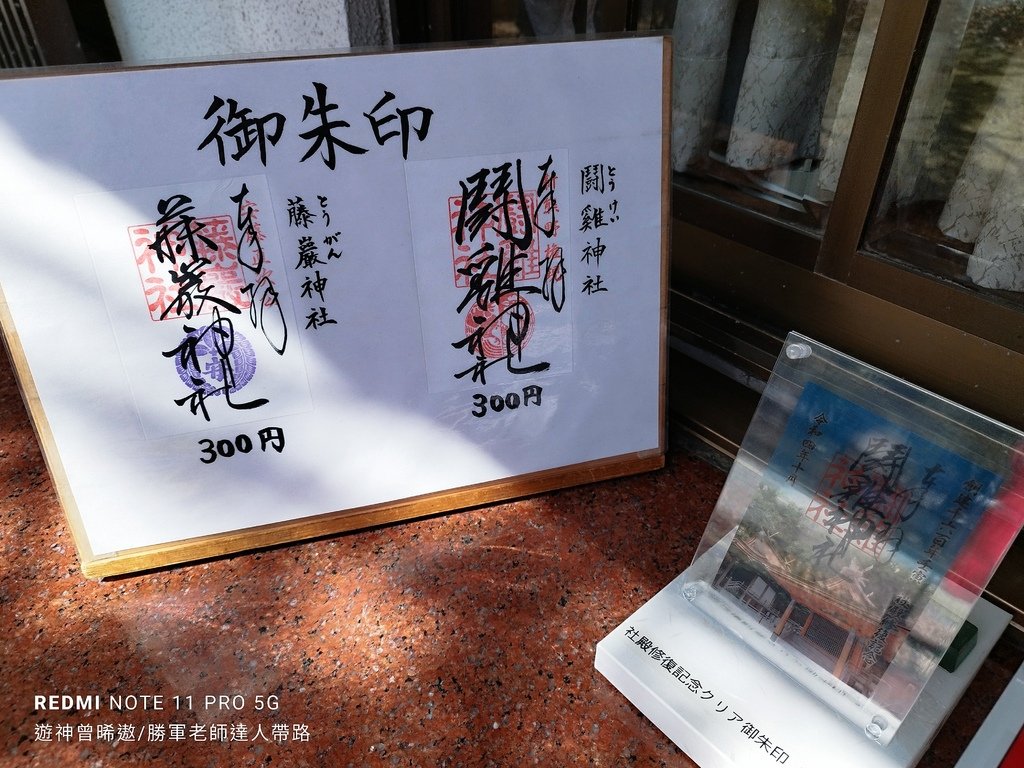 御朱印
とうけい
闘雞神社
奉拝
闘雞神社
300円
とうがん
藤巖神社
奉拝
藤巖神社
300円
奉拝
闘雞神社
令和四年十月
社殿修復記念クリア御朱印
REDMI NOTE 11 PRO 5G
遊神曾晞遨/勝軍老師達人帶路